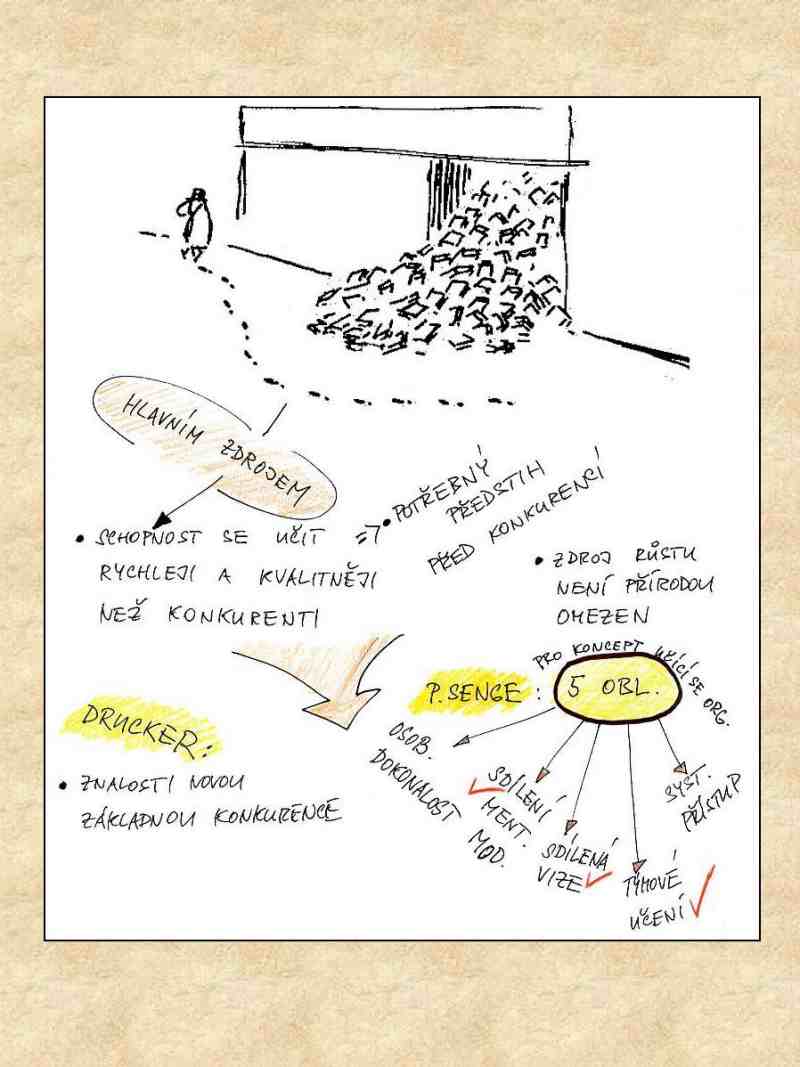 HLAVNÍM ZDROJEM
• SCHOPNOST SE UČIT =>
RYCHLEJI A KVALITNĚJI
NEŽ KONKURENTI
• POTŘEBNÝ
PŘEDSTIH
PŘED KONKURENCÍ
• ZDROJ RŮSTU
NENÍ PŘÍRODOU
OMEZEN
PRO KONCEPT UČÍCÍ SE ORG.
P. SENGE : 5 OBL.
OSOB.
DOKONALOST
SDÍLENÍ
MENT.
MOD.
SDÍLENÁ
VIZE
TÝMOVÉ
UČENÍ
SYST.
PŘÍSTUP
DRUCKER:
• ZNALOSTI NOVOU
ZÁKLADNOU KONKURENCE